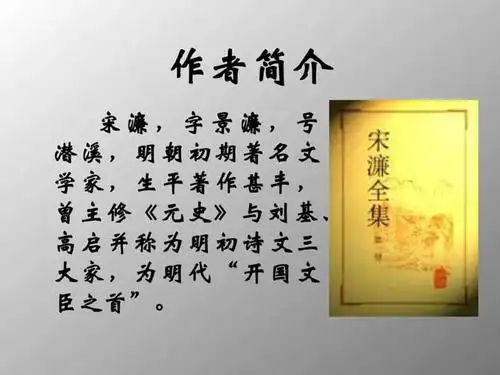 作者简介
宋濂，字景濂，号
潜溪，明朝初期著名文
学家，生平著作甚丰，
曾主修《元史》与刘基、
高启并称为明初诗文三
大家，为明代“开国文
臣之首”。
宋濂全集